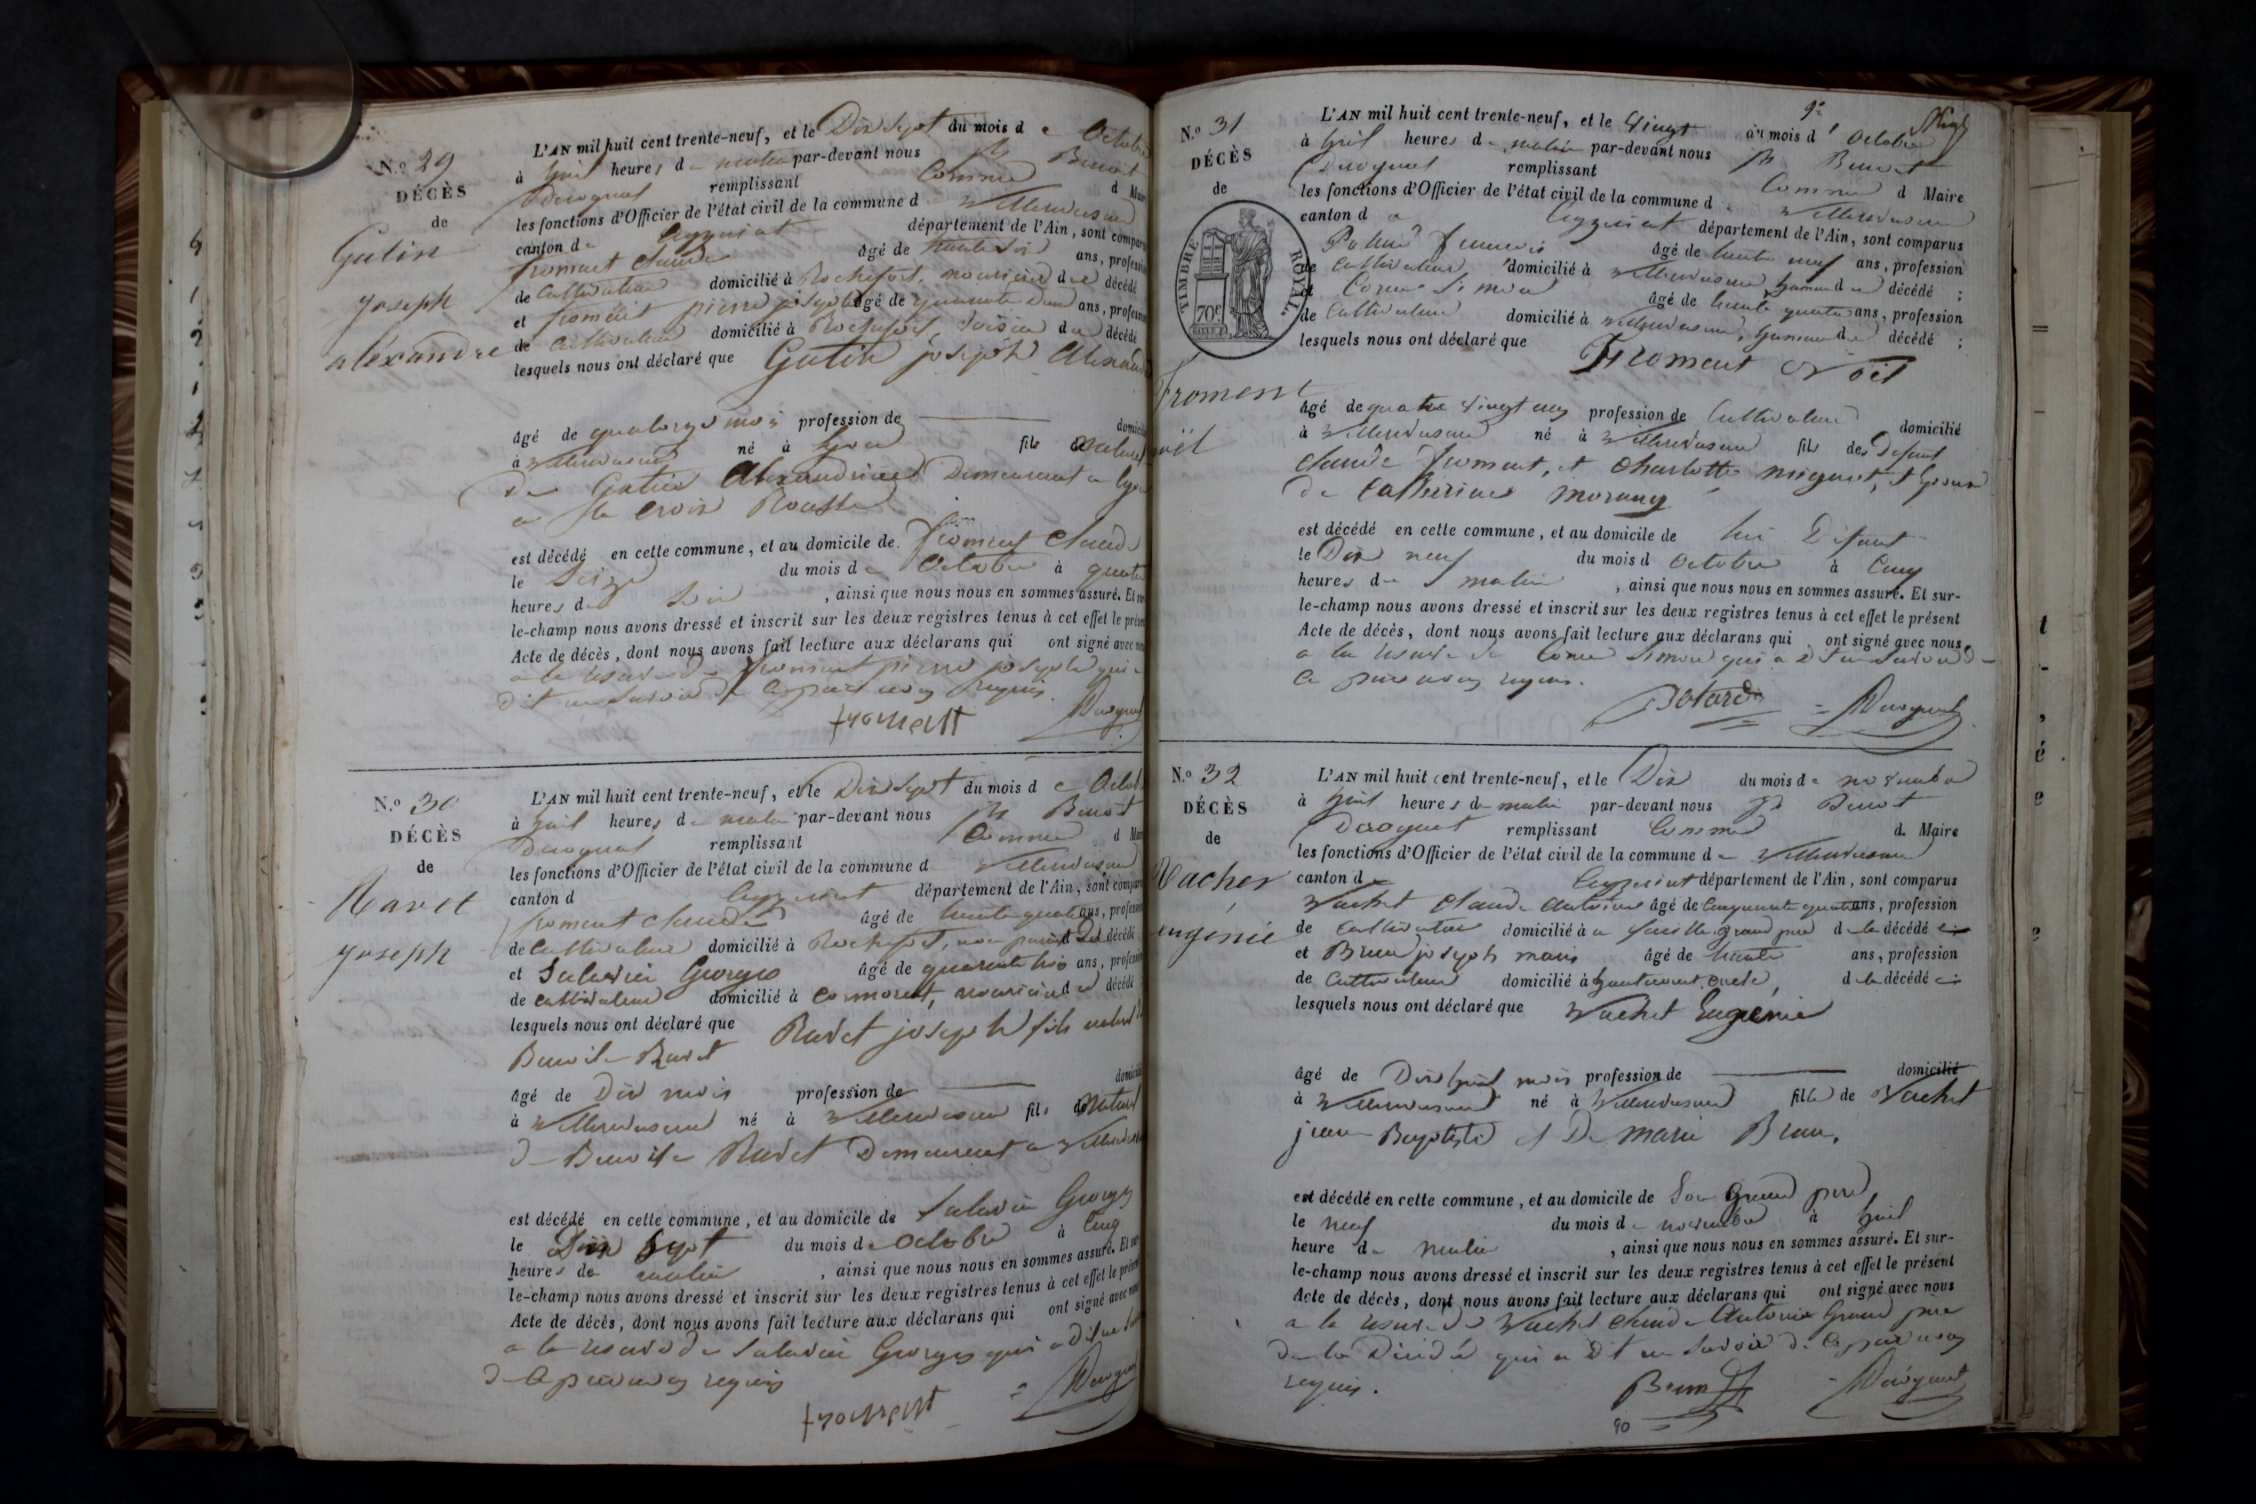 N.º 29
DÉCÈS
de
Gutin
joseph
aléxandre
L'AN mil huit cent trente-neuf, et le Dix Sept du mois d e Octobre
à huit heures de matin par-devant nous ph Benoit
Duroquet remplissant Comme d Mair
les fonctions d'Officier de l'état civil de la commune d e Villereversure
canton de Ceyzeriat département de l'Ain, sont compar
froment claude âgé de trente six ans, profession
de Cultivateur domicilié à Rochefort, nouricier du décédé
et froment pierre joseph âgé de quarante deux ans, profession
de Cultivateur domicilié à Rochefort, voisin du décédé
lesquels nous ont déclaré que Gutin joseph Alexandre
âgé de quatorze mois profession de domicilié
à Villereversure né à Lyon fils naturel
de Gutin Alexandrine Demeurant a Lyon
a la croix Rousse
est décédé en cette commune, et au domicile de froment Claude
le Seize du mois de Octobre à quatre
heures du Soir , ainsi que nous nous en sommes assuré. Et sur
le-champ nous avons dressé et inscrit sur les deux registres tenus à cet effet le présent
Acte de décès, dont nous avons fait lecture aux déclarans qui ont signé avec nous
a la réserve de froment pierre joseph qui a
dit ne Savoir de ce par nous requis.
froment Duroquet
N.º 30
DÉCÈS
de
Ravet
joseph
L'AN mil huit cent trente-neuf, et le Dix Sept du mois d e Octobre
à huit heures de matin par-devant nous ph Benoit
Duroquet remplissant Comme d Mair
les fonctions d'Officier de l'état civil de la commune d e Villereversure
canton d Ceyzeriat département de l'Ain, sont comparus
froment claude âgé de trente quatre ans, profession
de Cultivateur domicilié à Rochefort, non parent du décédé
et Salavin Georges âgé de quarante trois ans, profession
de cultivateur domicilié à cormorent, nouricier du décédé
lesquels nous ont déclaré que Ravet joseph fils naturel de
Benoite Ravet
âgé de Dix mois profession de domicilié
à Villereversure né à Villereversure fils Naturel
de Benoite Ravet Demeurant a Villereversure
est décédé en cette commune, et au domicile de Salavin Georges
le Dix Sept du mois de Octobre à Cinq
heures de matin , ainsi que nous nous en sommes assuré. Et sur
le-champ nous avons dressé et inscrit sur les deux registres tenus à cet effet le présent
Acte de décès, dont nous avons fait lecture aux déclarans qui ont signé avec nous
a la réserve de Salavin Georges qui a dit ne Savoir
de ce par nous requis
froment Duroquet
N.º 31
DÉCÈS
de
TIMBRE ROYAL
70c
froment
noël
L'AN mil huit cent trente-neuf, et le Vingt du mois d' Octobre
à huit heures de matin par-devant nous ph Benoit
Duroquet remplissant Comme d Maire
les fonctions d'Officier de l'état civil de la commune d e Villereversure
canton d e Ceyzeriat département de l'Ain, sont comparus
âgé de trente neuf ans, profession
de Cultivateur domicilié à Villereversure, gendre du décédé ;
et Corne Simon âgé de trente quatre ans, profession
de Cultivateur domicilié à Villereversure, gendre du décédé ;
lesquels nous ont déclaré que Froment Noël
âgé de quatre Vingt cinq profession de Cultivateur domicilié
à Villereversure né à Villereversure fils des Défunt
claude froment, et Charlotte mignot, et Epoux
de Catherine morancy
est décédé en cette commune, et au domicile de lui Défunt
le Dix neuf du mois d Octobre à Cinq
heures de matin , ainsi que nous nous en sommes assuré. Et sur-
le-champ nous avons dressé et inscrit sur les deux registres tenus à cet effet le présent
Acte de décès, dont nous avons fait lecture aux déclarans qui ont signé avec nous,
a la réserve de Corne Simon qui a dit ne Savoir de
ce par nous requis.
Duroquet
N.º 32
DÉCÈS
de
Vachet
eugénie
L'AN mil huit cent trente-neuf, et le Dix du mois de novembre
à huit heures de matin par-devant nous ph Benoit
Duroquet remplissant Comme d. Maire
les fonctions d'Officier de l'état civil de la commune d e Villereversure
canton de Ceyzeriat département de l'Ain, sont comparus
Vachet Claude Antoine âgé de Cinquante quatre ans, profession
de Cultivateur domicilié à grand père de la décédé
et Brun joseph marie âgé de trente ans, profession
de Cultivateur domicilié à oncle, de la décédé
lesquels nous ont déclaré que Vachet Eugénie
âgé de Dix huit mois profession de domicilié
à Villereversure né à Villereversure fille de Vachet
jean Baptiste et De marie Brun.
est décédé en cette commune, et au domicile de Son grand père
le neuf du mois de novembre à huit
heure de matin , ainsi que nous nous en sommes assuré. Et sur-
le-champ nous avons dressé et inscrit sur les deux registres tenus à cet effet le présent
Acte de décès, dont nous avons fait lecture aux déclarans qui ont signé avec nous
a la réserve de Vachet claude Antoine Grand père
de la Décédé qui a dit ne Savoir de ce par nous
requis.
Brun Duroquet
90